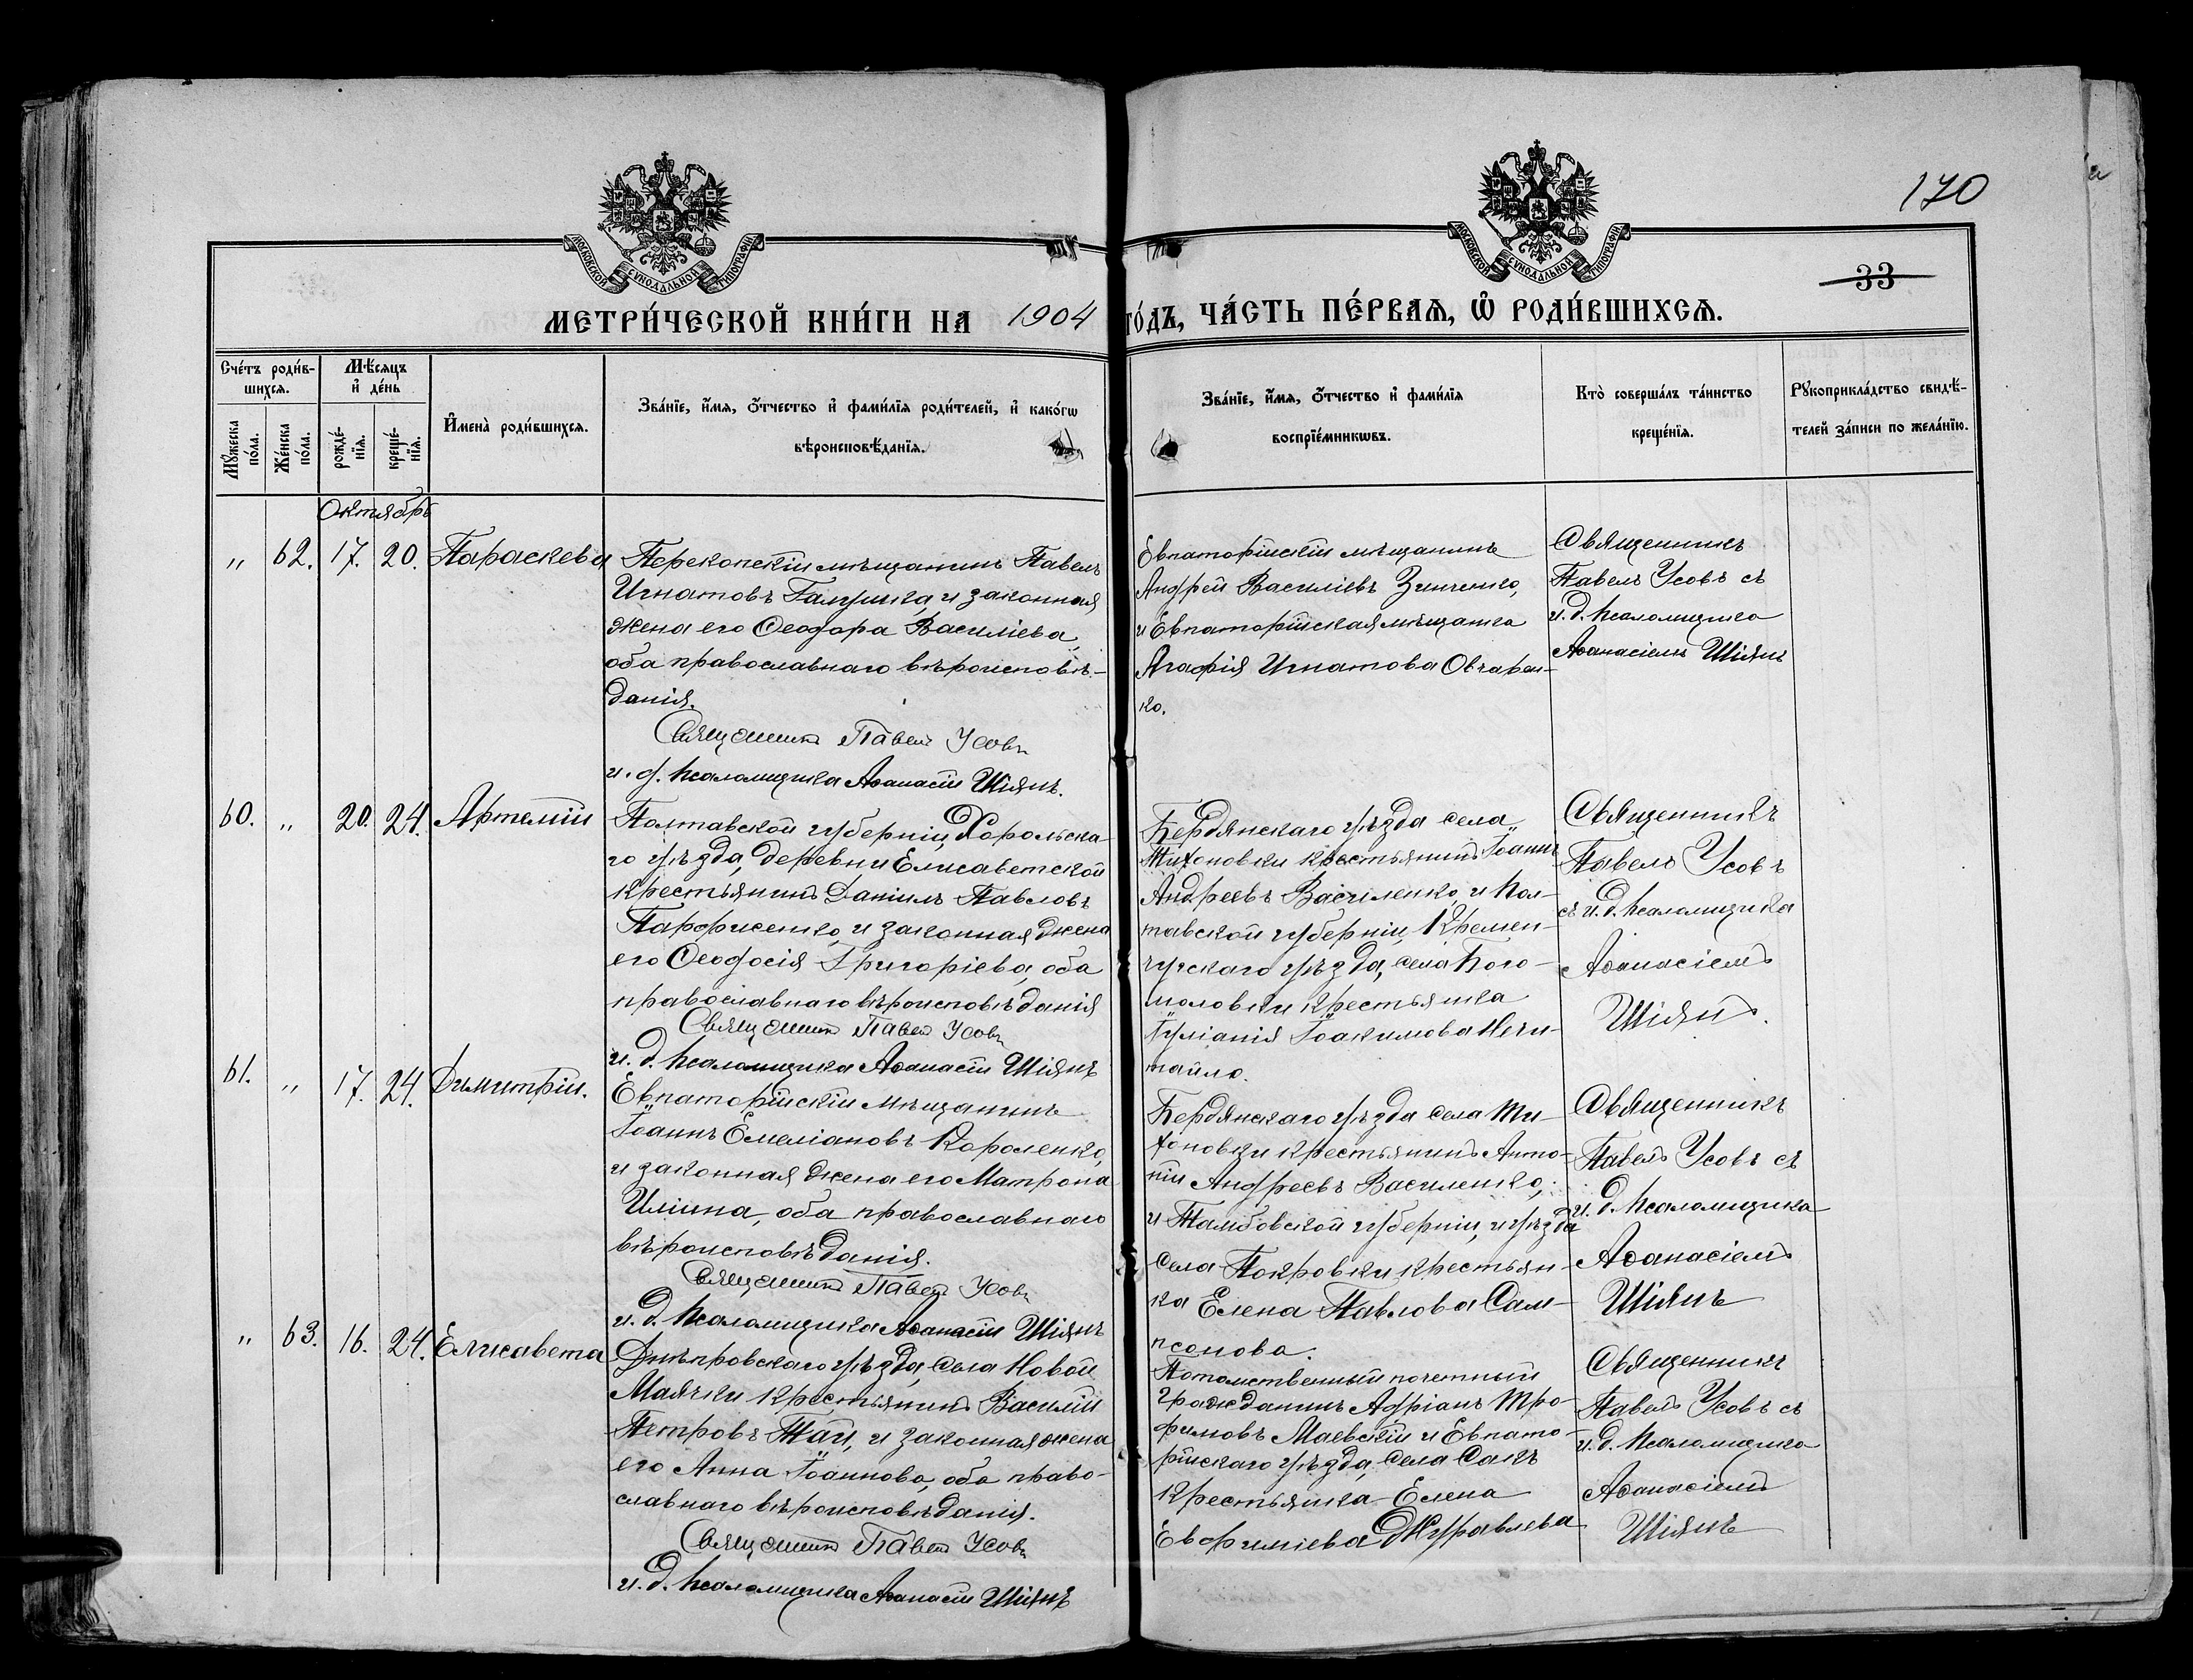 170
33
МОСКОВСКОЙ СУНОДАЛЬНОЙ ТИПОГРАФІИ
МОСКОВСКОЙ СУНОДАЛЬНОЙ ТИПОГРАФІИ
МЕТРИ́ЧЕСКОЙ КНИ́ГИ НА 1904 ГО́ДЪ, ЧА́СТЬ ПЕ́РВАѦ, Ѡ РОДИ́ВШИХСѦ.
Сче́тъ роди́в-
шихсѧ.
Мѣ́сѧцъ
и де́нь
Му́жеска по́ла.
Же́нска по́ла.
рожде́-
нїѧ.
креще́-
нїѧ.
Имена̀ роди́вшихсѧ.
Зва́нїе, и́мѧ, о́тчество и фами́лїѧ роди́телей, и како́гѡ
вѣроисповѣ́данїѧ.
Зва́нїе, и́мѧ, о́тчество и фами́лїѧ
воспрїе́мникѡвъ.
Кто̀ соверша́лъ та́инство
креще́нїѧ.
Рукоприкла́дство свидѣ́-
телей за́писи по жела́нїю.
Октябрь
„ 62. 17. 20. Параскева
Перекопскій мѣщанинъ Павелъ
Игнатовъ и законная
жена его Ѳеодора Василіева,
оба православнаго вѣроисповѣ-
данія.
Священникъ Павелъ Усовъ
и. д. псаломщика Аѳанасій Шіянъ.
Евпаторійскій мѣщанинъ
Андрей Василіевъ Зинченко,
и Евпаторійская мѣщанка
Агафія Игнатова Овчарен-
ко.
Священникъ
Павелъ Усовъ съ
и. д. псаломщика
Аѳанасіемъ Шіянъ
60. „ 20. 24. Артемій
Полтавской губерніи, Хорольска-
го уѣзда, деревни Елисаветской
крестьянинъ Даніилъ Павловъ
Парфисенко, и законная жена
его Ѳеодосія Григоріева, оба
православнаго вѣроисповѣданія
Священникъ Павелъ Усовъ
и. д. псаломщика Аѳанасій Шіянъ
Бердянскаго уѣзда села
Тихоновки крестьянинъ Іоаннъ
Андреевъ Василенко, и Пол-
тавской губерніи, Кремен-
чугскаго уѣзда, села Бого-
моловки крестьянка
Іуліанія Іоакимова Нечи-
тайло.
Священникъ
Павелъ Усовъ
съ и. д. псаломщика
Аѳанасіемъ
Шіянъ.
61. „ 17. 24. Димитрій.
Евпаторійскій мѣщанинъ
Іоаннъ Емеліановъ Короленко,
и законная жена его Матрона
Иліина, оба православнаго
вѣроисповѣданія.
Священникъ Павелъ Усовъ
и. д. псаломщика Аѳанасій Шіянъ
Бердянскаго уѣзда села Ти-
хоновки крестьянинъ Анто-
ній Андреевъ Василенко,
и Тамбовской губерніи, и уѣзда
села Покровки крестьян-
ка Елена Павлова Сам-
псонова.
Священникъ
Павелъ Усовъ съ
и. д. псаломщика
Аѳанасіемъ
Шіянъ
„ 63. 16. 24. Елисавета
Днѣпровскаго уѣзда, села Новой
Маячки крестьянинъ Василій
Петровъ Тай, и законная жена
его Анна Іоаннова, оба право-
славнаго вѣроисповѣданія.
Священникъ Павелъ Усовъ
и. д. псаломщика Аѳанасій Шіянъ
Потомственный почетный
гражданинъ Адріанъ Тро-
фимовъ Маевскій и Евпато-
рійскаго уѣзда, села Сакъ
крестьянка Елена
Евфиміева Журавлева
Священникъ
Павелъ Усовъ съ
и. д. псаломщика
Аѳанасіемъ
Шіянъ